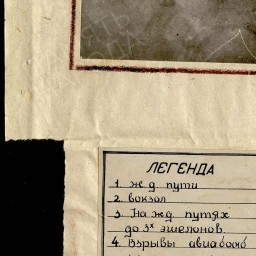 ЛЕГЕНДА
1. ж д. пути
2. вокзал
3. На жд. путях
до 3х эшелонов.
4. Взрывы авиабомб